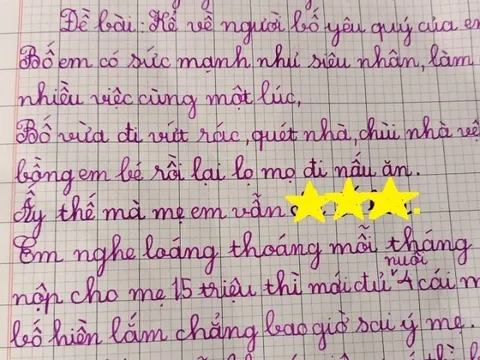 Đề bài: Kể về người bố yêu quý của em
Bố em có sức mạnh như siêu nhân, làm
nhiều việc cùng một lúc,
Bố vừa đi vứt rác, quét nhà, chùi nhà vệ
bồng em bé rồi lại lọ mọ đi nấu ăn.
Ấy thế mà mẹ em vẫn
Em nghe loáng thoáng mỗi tháng
nuôi
nộp cho mẹ 15 triệu thì mới đủ 4 cái m
bố hiền lắm chẳng bao giờ sai ý mẹ.